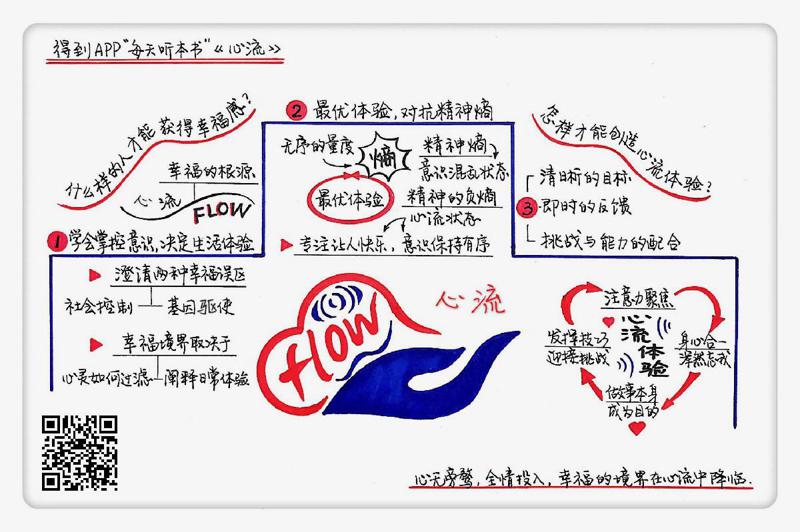 得到APP"每天听本书"《心流》
什么样的人才能获得幸福感?
幸福的根源
心流
FLOW
1 学会掌控意识,决定生活体验
澄清两种幸福误区
社会控制 基因驱使
幸福境界取决于
心灵如何过滤 阐释日常体验
2 最优体验,对抗精神熵
无序的量度
熵
精神熵
意识混乱状态
最优体验
精神的负熵
心流状态
专注让人快乐,意识保持有序
怎样才能创造心流体验?
清晰的目标
3 即时的反馈
挑战与能力的配合
flow
心流
注意力聚焦
身心合一
浑然忘我
做事本身
成为目的
发挥技巧
迎接挑战
心流体验
心无旁骛,全情投入,幸福的境界在心流中降临.